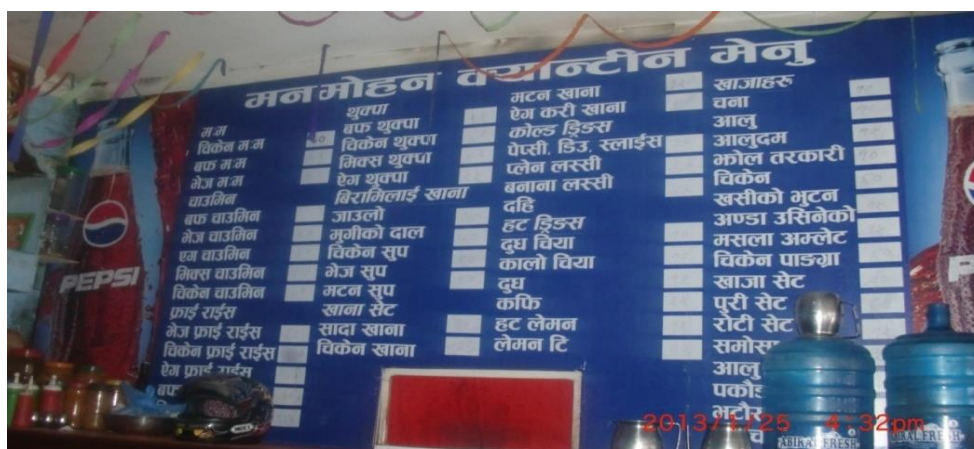 मनमोहन क्यान्टीन मेनु
म:म
चिकेन म:म
बफ म:म
भेज म:म
चाउमिन
बफ चाउमिन
भेज चाउमिन
एग चाउमिन
मिक्स चाउमिन
चिकेन चाउमिन
फ्राई राईस
भेज फ्राई राईस
चिकेन फ्राई राईस
ऐग फ्राई राईस
बफ
थुक्पा
बफ थुक्पा
चिकेन थुक्पा
मिक्स थुक्पा
ऐग थुक्पा
बिरामिलाई खाना
जाउलो
मुगीको दाल
चिकेन सुप
भेज सुप
मटन सुप
खाना सेट
सादा खाना
चिकेन खाना
मटन खाना
ऐग करी खाना
कोल्ड ड्रिङस
पेप्सी, डिउ, स्लाईस
प्लेन लस्सी
बनाना लस्सी
दहि
हट ड्रिङस
दुध चिया
कालो चिया
दुध
कफि
हट लेमन
लेमन टि
खाजाहरु
चना
आलु
आलुदम
झोल तरकारी
चिकेन
खसीको भुटन
अण्डा उसिनेको
मसला अम्लेट
चिकेन पाङग्रा
खाजा सेट
पुरी सेट
रोटी सेट
समोसा
आलु
PEPSI
2013/1/25 4:32pm
ABIRAL FRESH